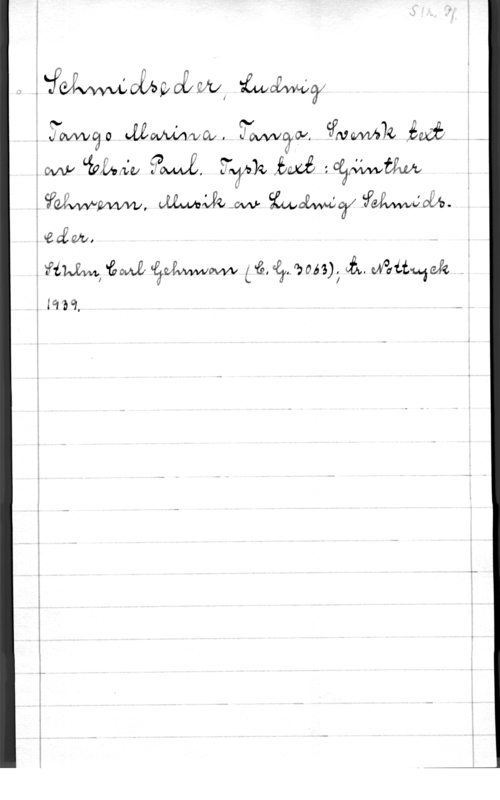 Schmidseder, Ludwig
Tango Marina. Tango. Svensk text
av Elsie Paul. Tysk text : Günther
Schwenn. Musik av Ludwig Schmids-
eder.
Sthlm, Carl Gehrman (C. G. 3063); tr. Nottryck
1939.